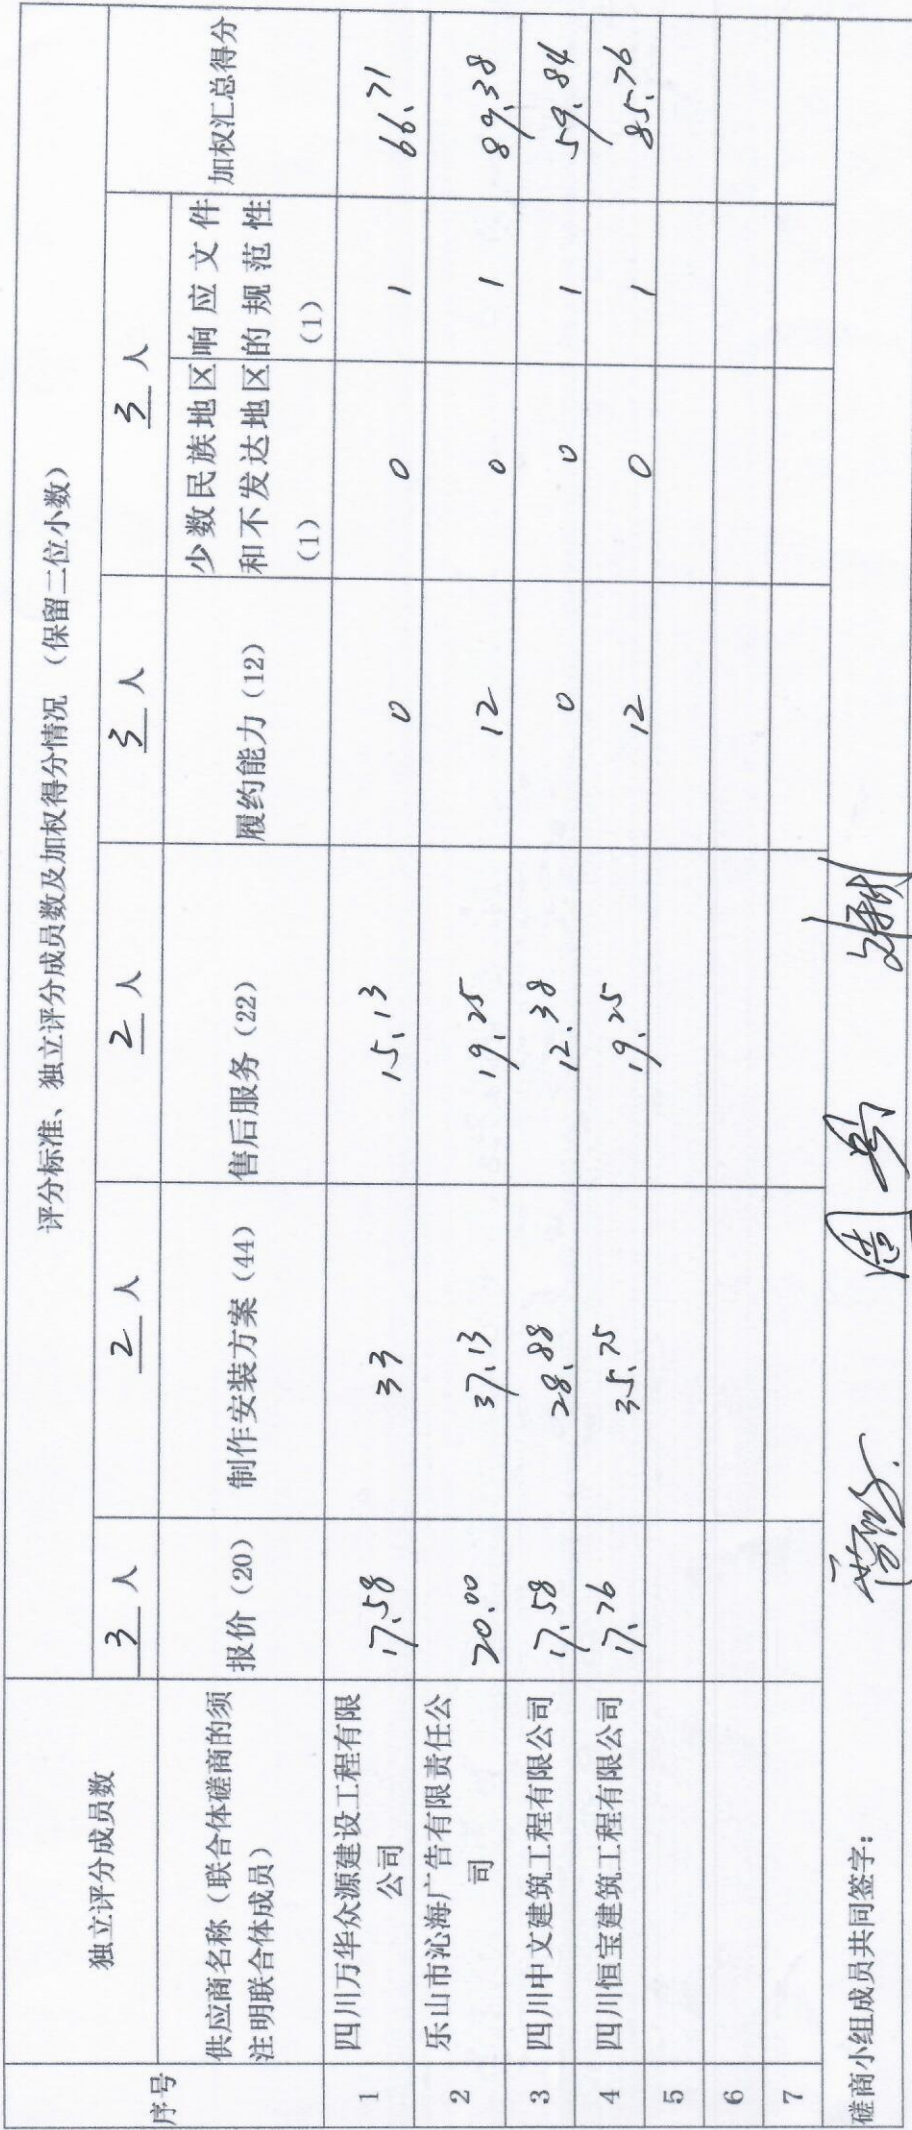 评分标准、独立评分成员数及加权得分情况（保留二位小数）
独立评分成员数 3 人 2 人 2 人 3 人 3 人
序号 供应商名称（联合体磋商的须注明联合体成员） 报价（20） 制作安装方案（44） 售后服务（22） 履约能力（12） 少数民族地区和不发达地区（1） 响应文件的规范性（1） 加权汇总得分
1 四川万华众源建设工程有限公司 17.58 33 15.13 0 0 1 66.71
2 乐山市沁海广告有限责任公司 20.00 37.13 19.25 12 0 1 89.38
3 四川中文建筑工程有限公司 17.58 28.88 12.38 0 0 1 59.84
4 四川恒宝建筑工程有限公司 17.76 35.75 19.25 12 0 1 85.76
5
6
7
磋商小组成员共同签字：